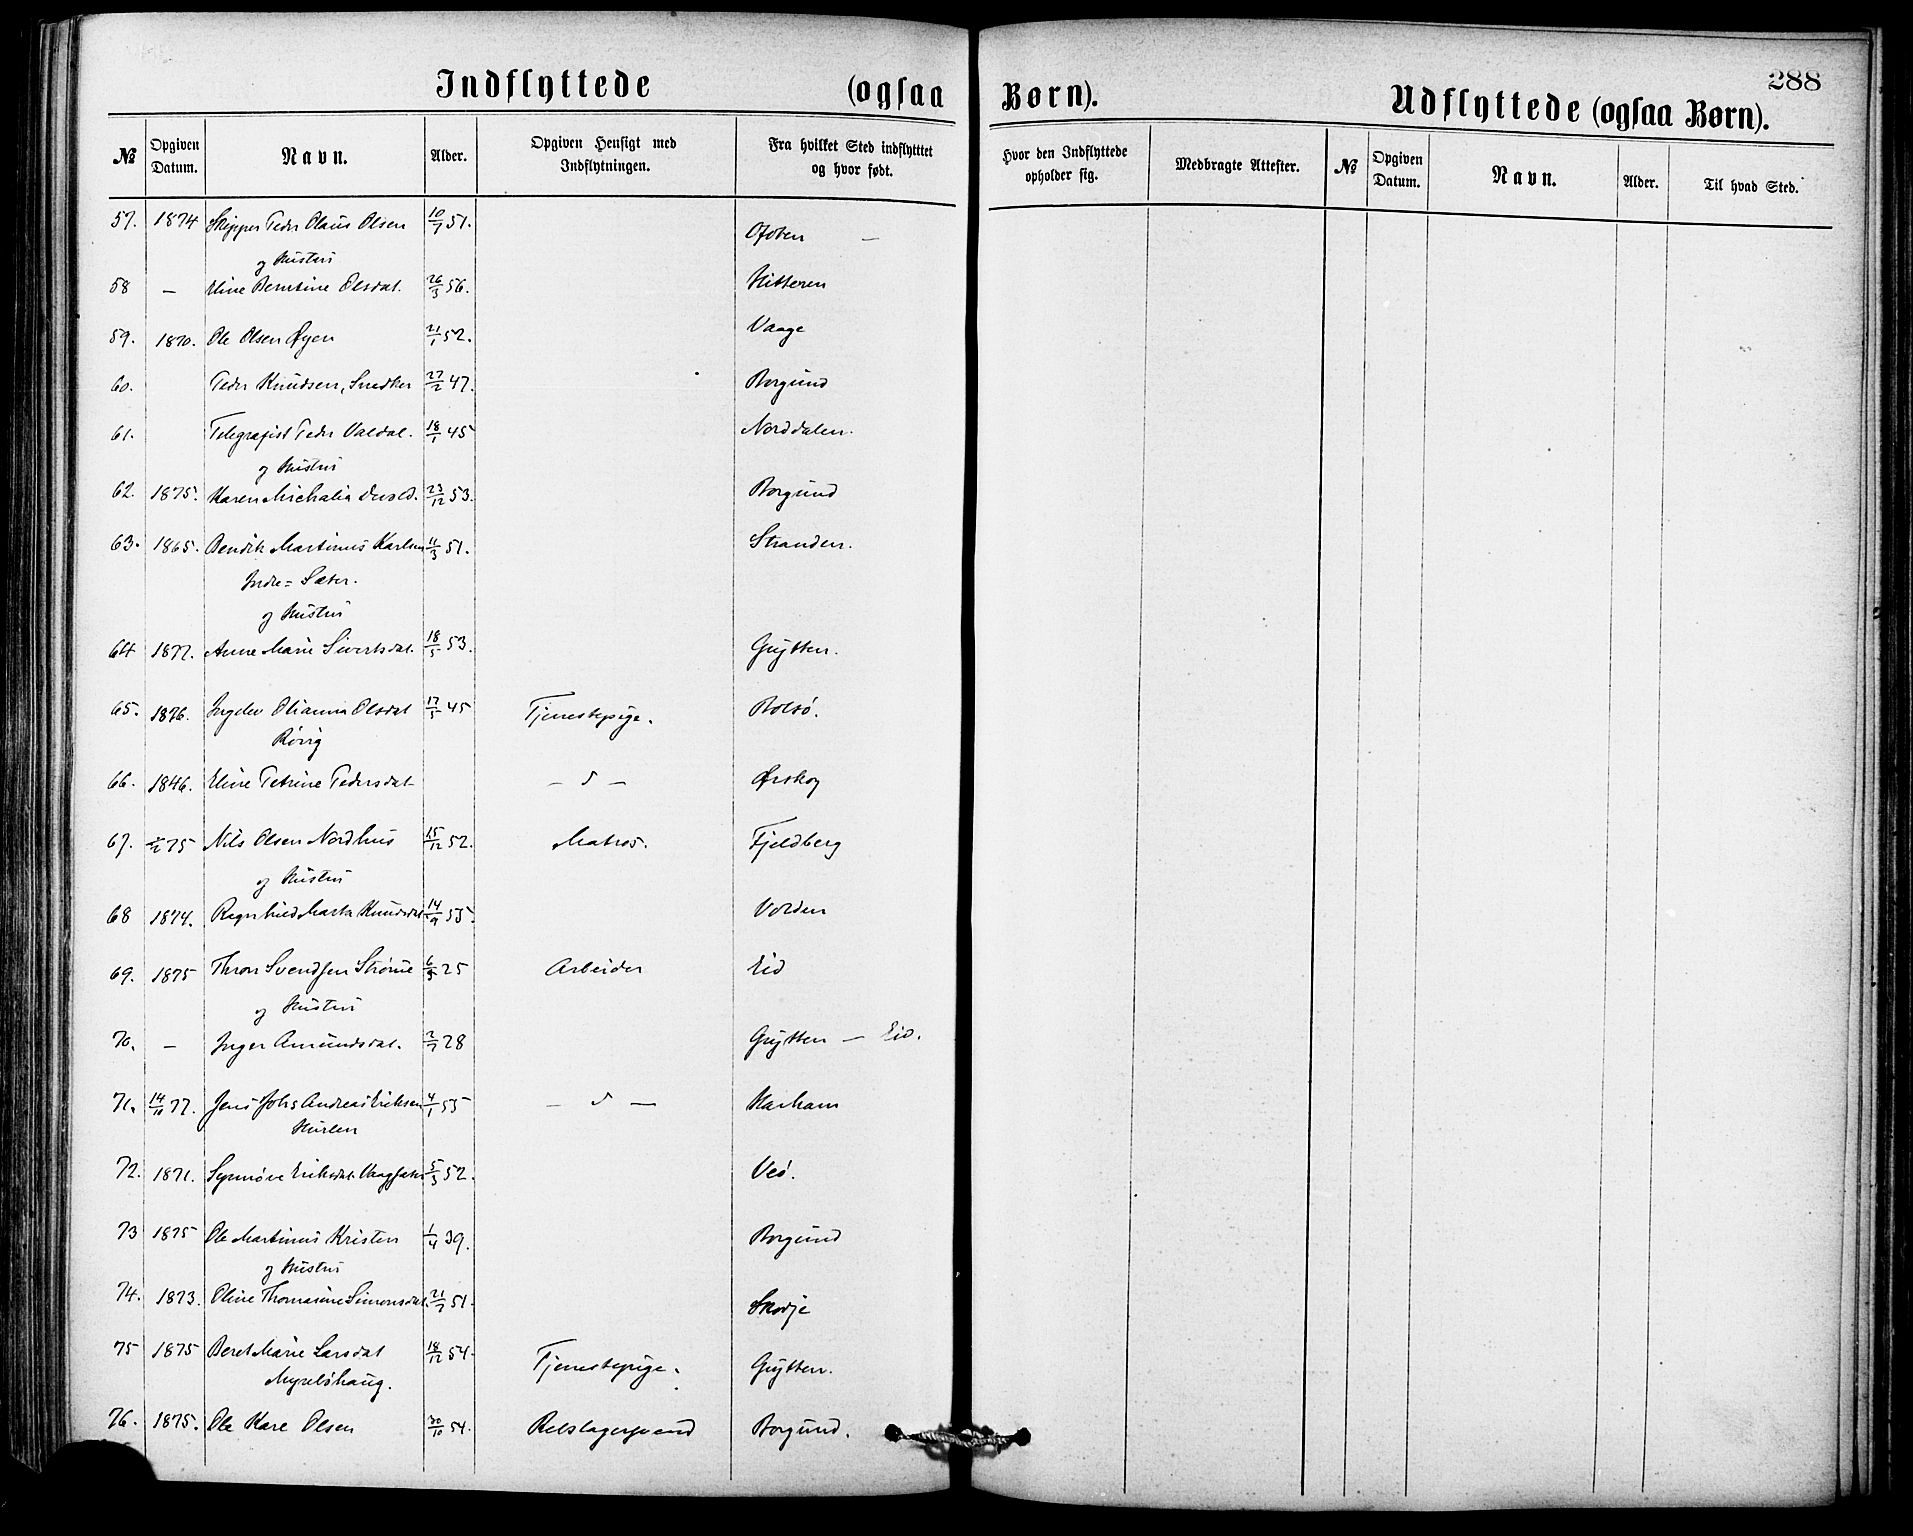 288
Indflyttede (ogsaa Børn). Udflyttede (ogsaa Børn).
№ Opgiven Datum. Navn. Alder. Opgiven Hensigt med Indflytningen. Fra hvilket Sted indflytttet og hvor født. Hvor den Indflyttede opholder sig. Medbragte Attester. № Opgiven Datum. Navn. Alder. Til hvad Sted.
57. 1874 Skipper Peder Olaus Olsen 10/7 51. Ofoten —
og Hustru
58 — Eline Berntine Olsdat. 26/3 56. Hitteren
59. 1870. Ole Olsen Øyen 21/1 52. Vaage
60. Peder Knudsen, Snedker 27/2 47. Borgund
61. Telegrafist Peder Valdal. 18/1 45 Norddalen.
og Hustru
62. 1875. Karen Michalia 23/12 53. Borgund
63. 1865. Bendik Martinus Karlsen 11/3 51. Stranden.
Indre=Sæter.
og Hustru
64 1877. Anne Marie Sivertsdat. 18/5 53. Grytten.
65. 1876. Ingeb. Olianna Olsdat 17/5 45 Tjenestepige. Bolsø.
Rövig
66. 1846. Eline Petrine Pedersdat — d — Ørskog
67. 75 Nils Olsen Nordhus 15/12 52. Matros. Fjeldberg
og Hustru
68 1874. Ragnhild Marta Knudsdat 14/9 55. Volden
69. 1875 Thron Svendsen Strøme 6/5 25 Arbeider Eid
og Hustru
70. — Inger Amundsdat. 2/7 28 Grytten — Eid.
71. 14/10 77. Jens Johs Andreas Eriksen 4/1 55 — d — Harham
Hurlen
72. 1871. Synnøve Eriksdat. 5/3 52. Veö.
73 1875 Ole Martinus Kristen 1/4 39. Borgund
og Hustru
74. 1873. Oline Thomasine Simonsdat. 21/7 51. Skodje
75 1875 Beret Marie Larsdat 18/12 54. Tjenestepige. Grytten.
Myrebøhaug.
76. 1875. Ole Kare Olsen 30/10 54. Rebslagersvend Borgund.